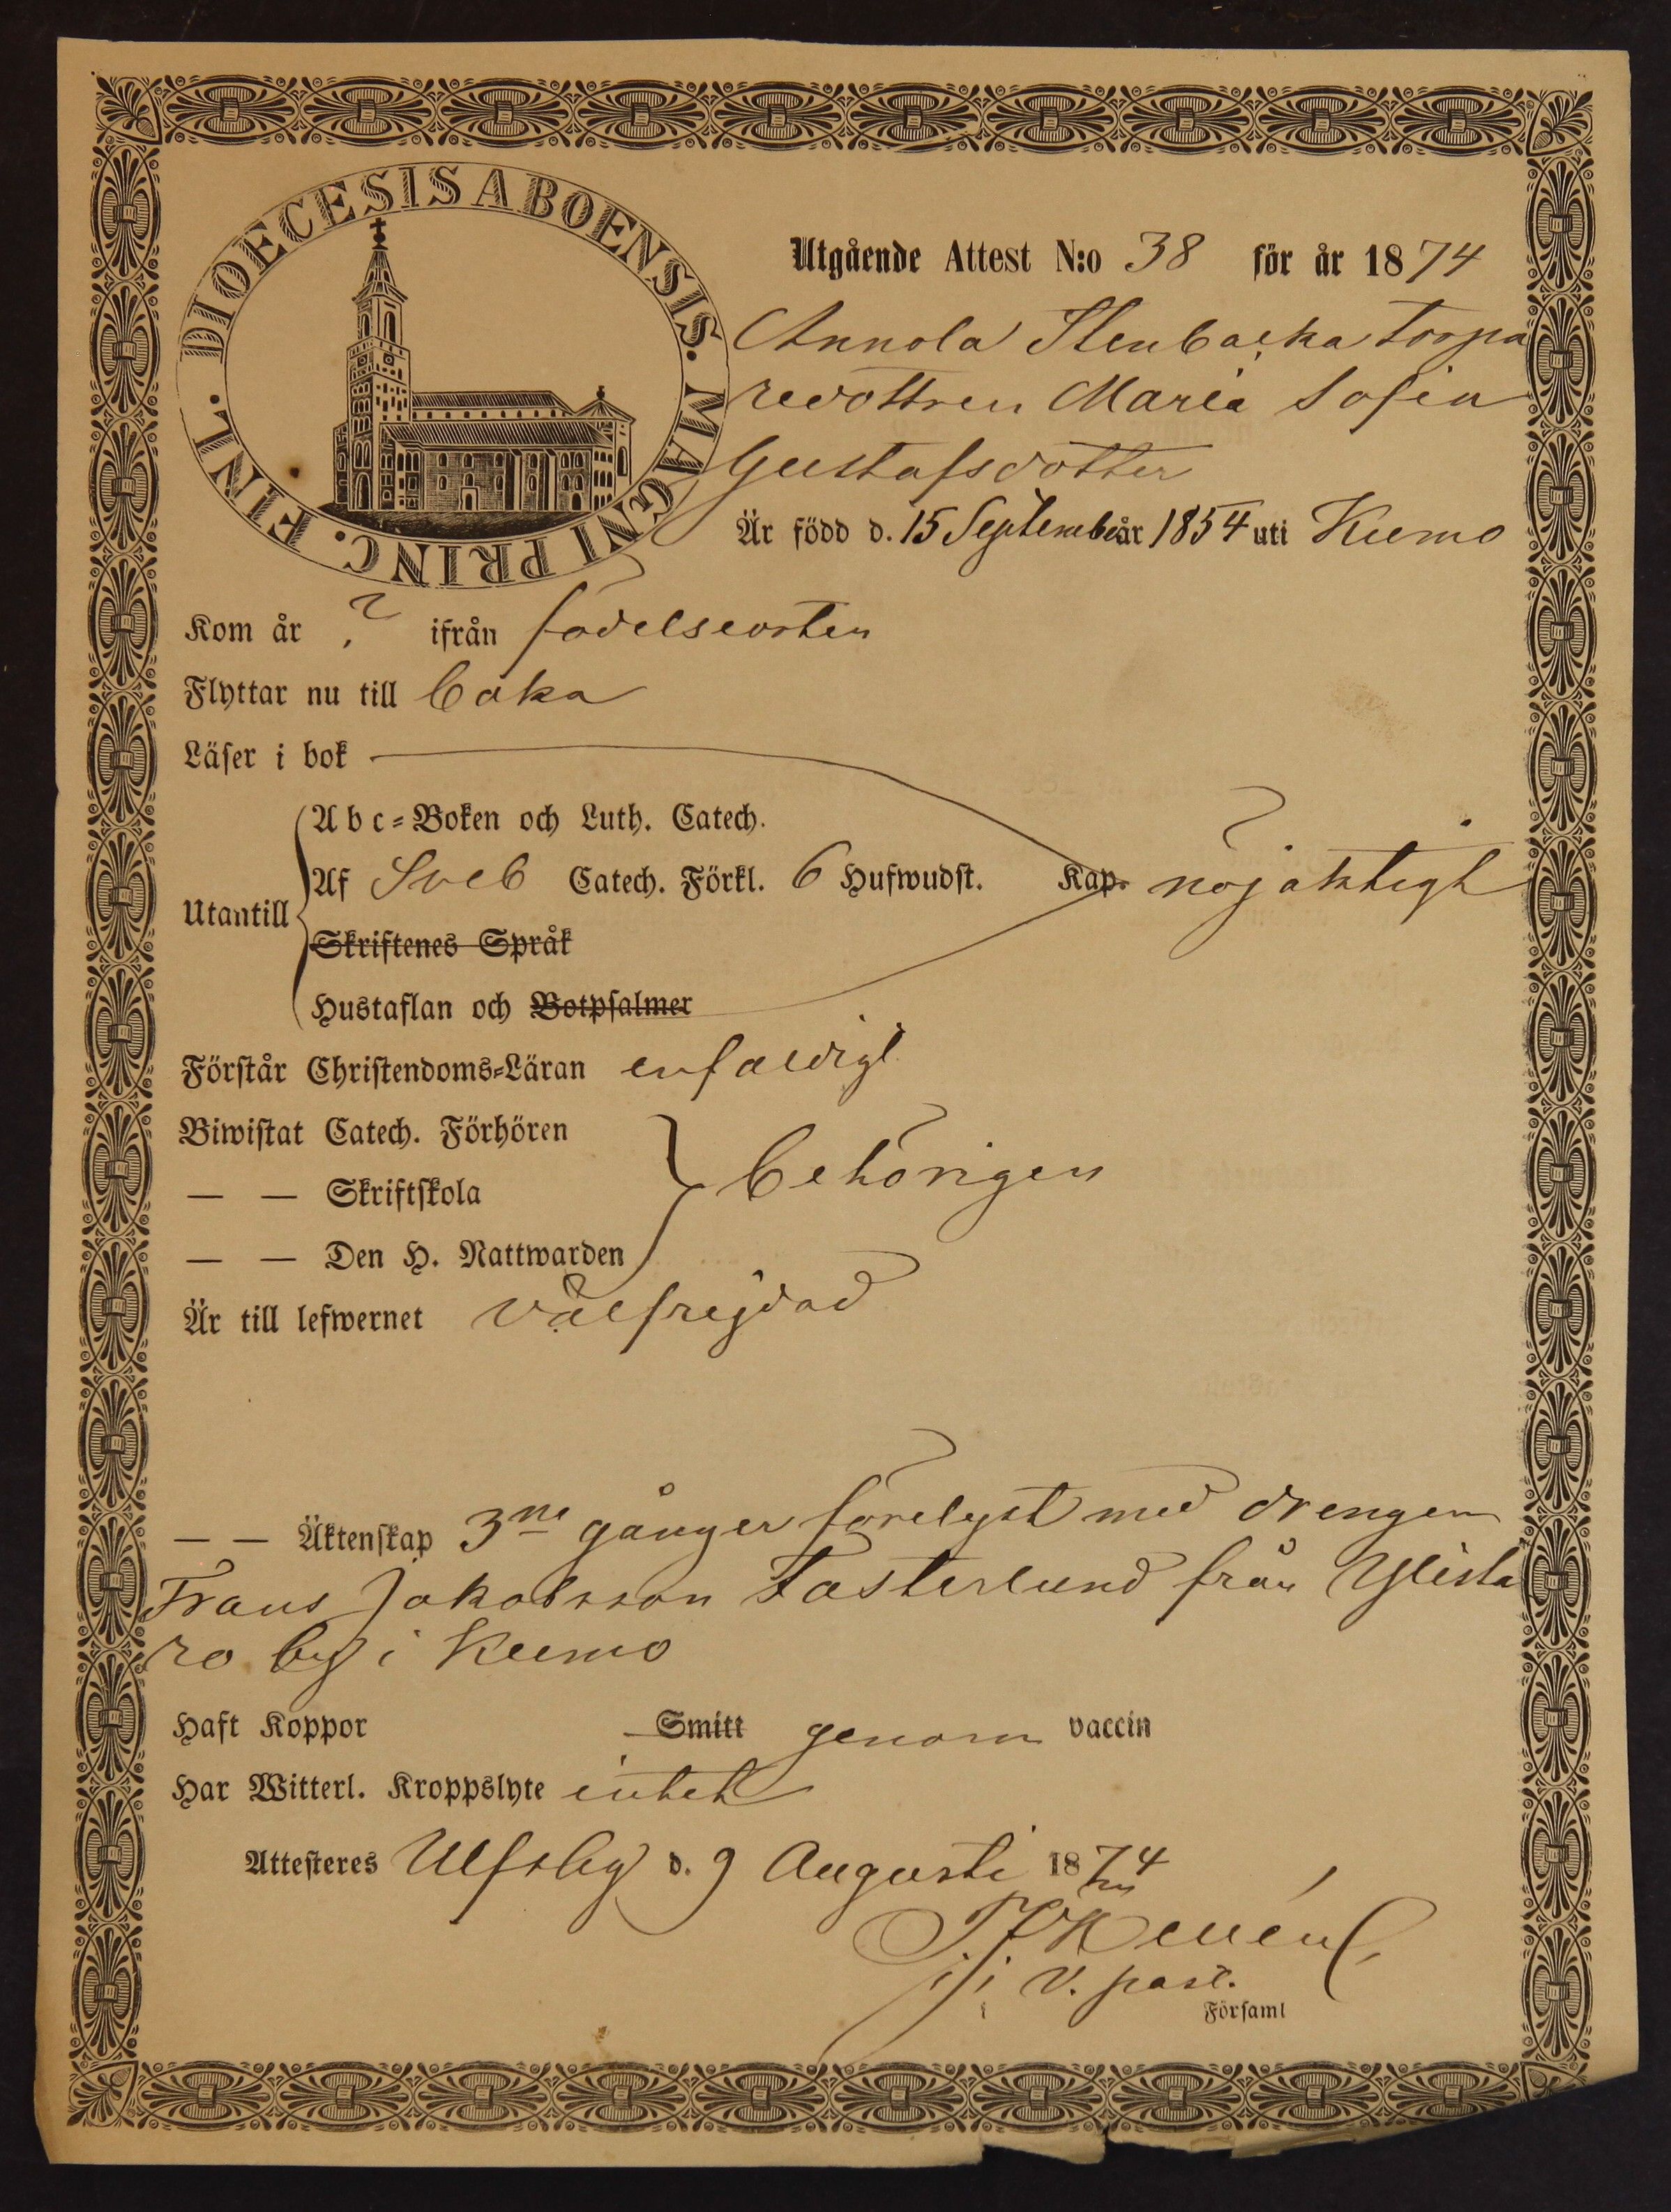 DIOECESIS ABOENSIS. MAGNI PRINC. FINL.
Utgående Attest N:o 38 för år 1874
Annola Stenbacka torpa
redottren Maria Sofia
Gustafsdotter
Är född d. 15 September år 1854 uti Kumo
Kom år ? ifrån födelseorten
Flyttar nu till baka
Läser i bok
Abc-Boken och Luth. Catech.
Utantill Af Sveb Catech. Förkl. 6 Hufwudst. Kap. nöjaktigt
Skriftenes Språk
Hustaflan och Botpsalmer
Förstår Christendoms-Läran enfaldigt
Biwistat Catech. Förhören
— — Skriftskola behörigen
— — Den H. Nattwarden
Är till lefwernet välfrejdad
— — Äktenskap 3ne gånger förelyst med drengen
Frans Jakobsson Fasterlund från Ylista
ro by i Kumo
Haft Koppor Smitt genom vaccin
Har Witterl. Kroppslyte intet
Attesteres Ulfsby d. 9 Augusti 1874
v. past.
i Församl